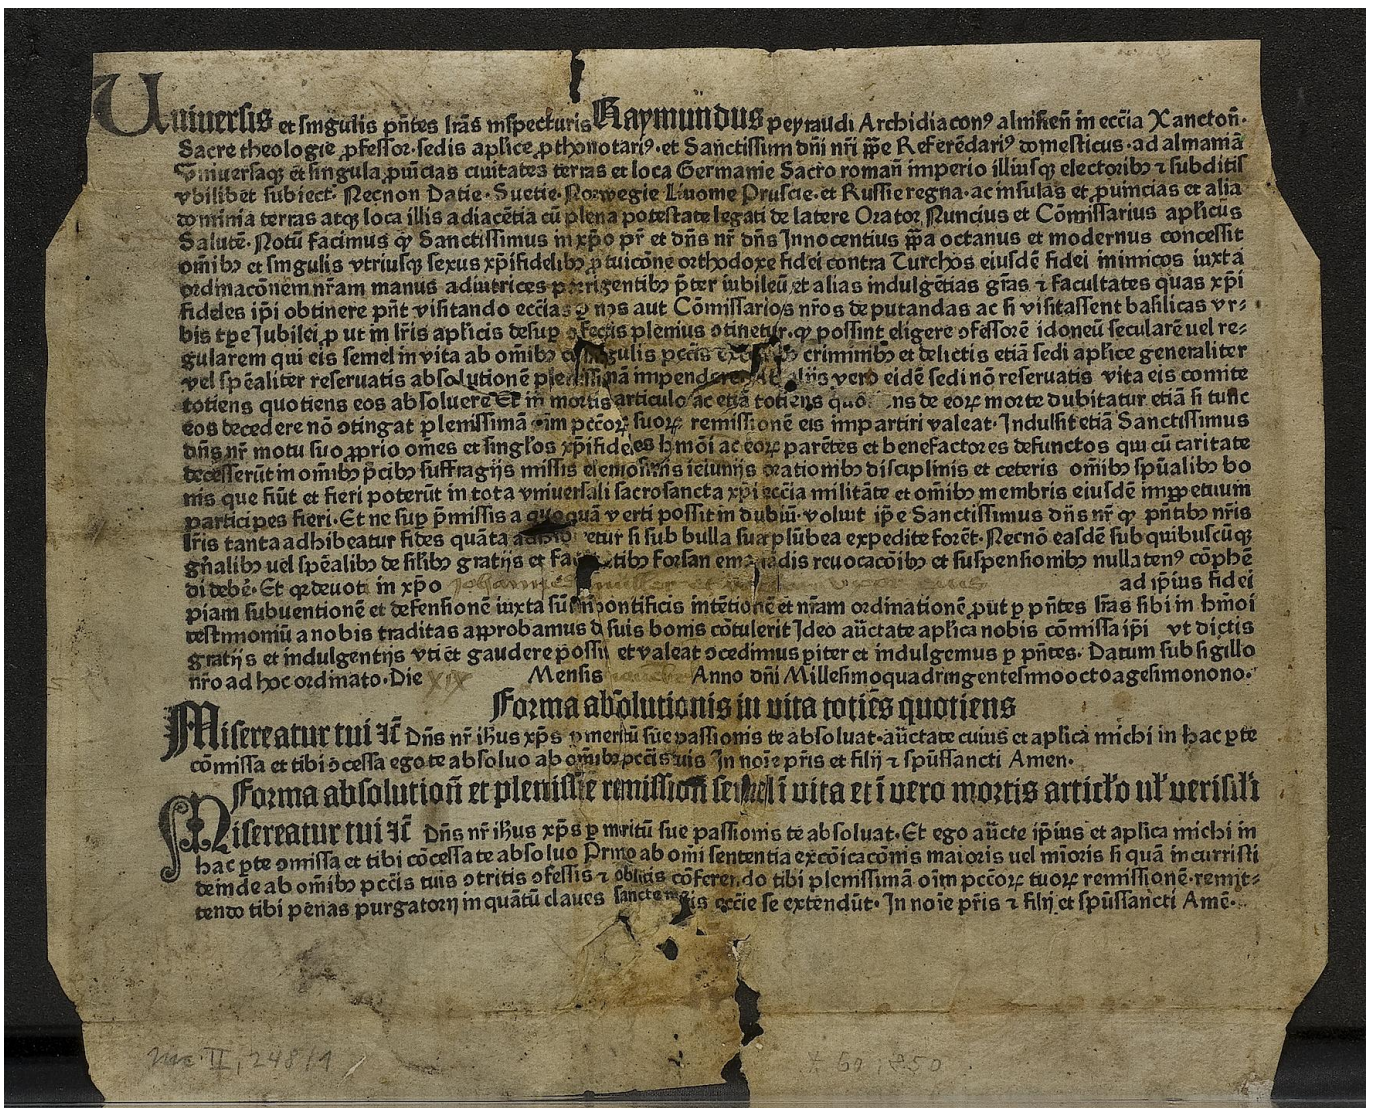 Uniuersis et singulis pn̄tes lr̄as inspecturis Raymundus peyraudi Archidiaconꝰ alnisien̄ in ecc̄ia Xancton̄·
Sacre theologie ꝓfessor· sedis aplīce ꝓthonotariꝰ· et Sanctissimi dn̄i nr̄i ꝑpe Referēdariꝰ domesticus· ad almaniā
Vniuersaqꝫ et̄ singula ꝓuīcias ciuitates terras et loca Germanie Sacro roman̄ imperio illiusqꝫ electoribꝫ ⁊ subditis
vbilibet̄ subiect̄· Necnon Datie· Suetie· Norwegie Liuonie Pruscie· et Russie regna· ac insulas et ꝓuincias et alia
dominia terras atqꝫ loca illis adiacētia cū plena potestate legati de latere Orator Nuncius et Cōmissarius aplīcus
Salutē· Notū facimus qꝙ Sanctissimus in xp̄o pr̄ et dn̄s nr̄ dn̄s Innocentius pp̄a octauus et modernus concessit
om̄ibꝫ et singulis vtriusqꝫ sexus xp̄ifidelibꝫ ꝓ tuicōne orthodoxe fidei contra Turchos eiusdē fidei inimicos iuxta
ordinacōnem nr̄am manus adiutrices porrigentibꝫ p̄ter iubileū et alias indulgētias gr̄as ⁊ facultates quas xp̄i
fideles ip̄i obtinere pn̄t visitando ecc̄ias ꝑ nos aut Cōmissarios nr̄os deputandas ac si visitassent basilicas vr-
bis tꝑe Jubilei ꝓ ut in lr̄is aplīcis desuꝑ ↄfectis plenius ↄtinetur· qꝙ possint eligere ↄfessorē idoneū secularē uel re-
gularem qui eis semel in vita ab om̄ibꝫ et singulis pcc̄is criminibꝫ et delictis etiā sedi aplīce generaliter
vel spēaliter reseruatis absolutionē plenissimā impendere vero eidē sedi nō reseruatis vita eis comite
totiens quotiens eos absoluere Et in mortis articulo ac etiā totiens de eoꝝ morte dubitatur etiā si tūc
eos decedere nō ↄtingat plenissimā oīm pcc̄oꝝ suoꝝ remissionē eis impartiri valeat· Indulsit etiā Sanctissimus
dn̄s nr̄ motu suo ꝓprio om̄es et singl̄os xp̄ifideles hm̄oi ac eoꝝ parētes et benefactores defunctos qui cū caritate
decesserūt in om̄ibꝫ p̄cibꝫ suffragijs missis elemosinis ieiunijs orationibꝫ disciplinis et ceteris om̄ibꝫ spūalibꝫ bo
nis que fiūt et fieri poterūt in tota vniuersali sacrosancta xp̄i ecc̄ia militāte et om̄ibꝫ membris eiusdē in ꝑpetuum
participes fieri· Et ne suꝑ p̄missis a quoquā verti possit in dubiū· voluit ip̄e Sanctissimus dn̄s nr̄ qꝙ pn̄tibꝫ nr̄is
lr̄is tanta adhibeatur fides quāta adhiberetur si sub bulla sua plūbea expedite forēt· Necnō easdē sub quibuscūqꝫ
gn̄alibꝫ uel spēalibꝫ de sil̄ibꝫ gratijs et facultatibꝫ forsan emanādis reuocacōibꝫ et suspensionibꝫ nullatenꝰ cōphē
di debē· Et qꝛ deuoti in xp̄o Johannes et ad ip̄ius fidei
piam subuentionē et defensionē iuxta sūmi pontificis intētionē et nr̄am ordinationē ꝓut ꝑ pn̄tes lr̄as sibi in hm̄oi
testimoniū a nobis traditas approbamus d suis bonis cōtulerit Ideo auc̄tate aplīca nobis cōmissa ip̄i vt dictis
gratijs et indulgentijs vti et̄ gaudere possit et valeat ↄcedimus ꝑiter et indulgemus ꝑ pn̄tes· Datum sub sigillo
nr̄o ad hoc ordinato· Die XIX Mensis Anno dn̄i Millesimoquadringentesimooctoagesimonono·
Forma absolutionis in vita totiēs quotiens
Misereatur tui ⁊c̄ Dn̄s nr̄ ih̄us xp̄s ꝑ meritū sue passionis te absoluat· auc̄tate cuius et aplīca michi in hac ꝑte
cōmissa et tibi ↄcessa ego te absoluo ab om̄ibꝫ pcc̄is tuis In noīe pr̄is et filij ⁊ spūssancti Amen·
Forma absolution̄ et plenissīe remission̄ semel ī vita et ī vero mortis articl̄o ul̄ verisil̄i
Misereatur tui ⁊c̄ Dn̄s nr̄ ih̄us xp̄s ꝑ meritū sue passionis te absoluat· Et ego auc̄te ip̄ius et aplīca michi in
hac ꝑte ↄmissa et tibi cōcessa te absoluo Primo ab om̄i sententia excōicacōnis maioris uel mīoris si quā incurristi
deinde ab om̄ibꝫ pcc̄is tuis ↄtritis ↄfessis ⁊ oblitis cōferendo tibi plenissimā oīm pcc̄oꝝ tuoꝝ remissionē· remit-
tendo tibi penas purgatorij in quātū claues sancte mr̄is ecc̄ie se extendūt· In noīe pr̄is ⁊ filij et spūssancti Amē·
II, 248/1